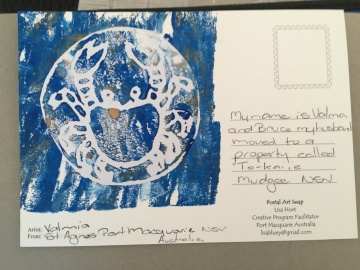 My name is Valma
and Bruce my husband
moved to a
property called
Te-kaire
Mudgee NSW
Postal Art Swap
Lisa Hort
Creative Program Facilitator
Port Macquarie Australia
lisablueys@gmail.com
Artist: Valmia
From: St Agnes Port Macquarie NSW
Australia